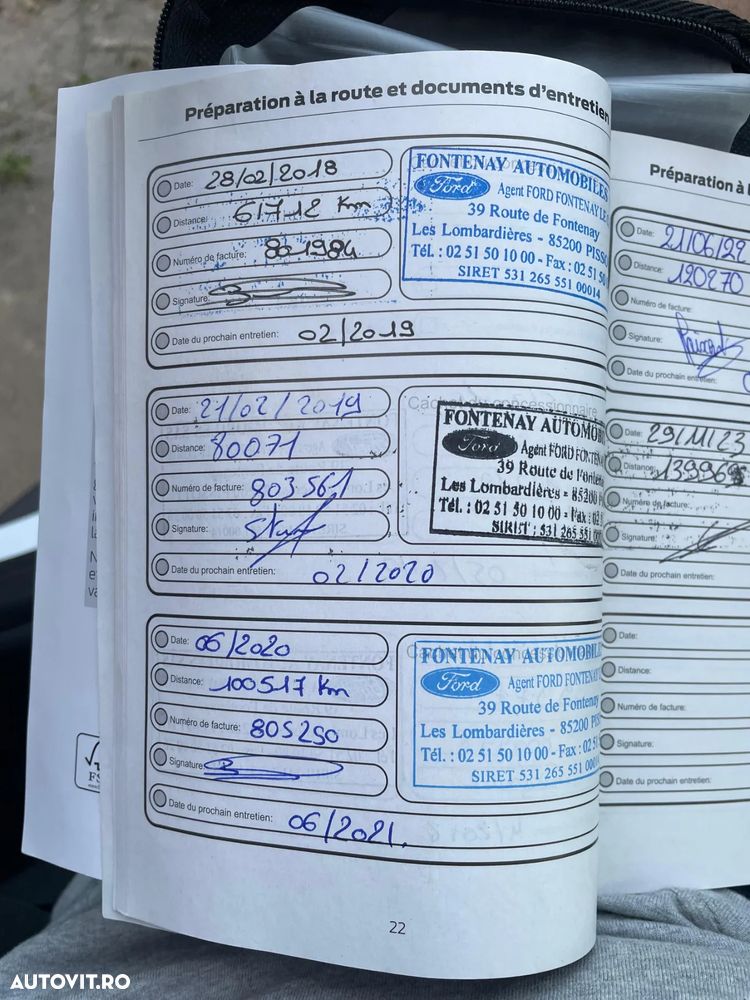 Préparation à la route et documents d'entretien
Date: 28/02/2018
Distance: 61712 Km
Numéro de facture: 801984
Signature:
Date du prochain entretien: 02/2019
FONTENAY AUTOMOBILES
Ford Agent FORD FONTENAY LE
39 Route de Fontenay
Les Lombardières - 85200 PISSO
Tél. : 02 51 50 10 00 - Fax : 02 51 50
SIRET 531 265 551 00014
Date: 21/02/2019
Distance: 80071
Numéro de facture: 803561
Signature:
Date du prochain entretien: 02/2020
Cachet du concessionnaire
FONTENAY AUTOMO
Ford Agent FORD FONTENA
39 Route de Fonten
Les Lombardières - 85200
Tél. : 02 51 50 10 00 - Fax : 02
SIRET : 531 265 551
Date: 06/2020
Distance: 100517 Km
Numéro de facture: 805250
Signature:
Date du prochain entretien: 06/2021.
FONTENAY AUTOMOBILE
Ford Agent FORD FONTENAY
39 Route de Fontenay
Les Lombardières - 85200 PISS
Tél. : 02 51 50 10 00 - Fax : 02 5
SIRET 531 265 551 00014
22
Préparation à l
Date: 21/06/22
Distance: 120270
Numéro de facture:
Signature:
Date du prochain entretien:
Date: 29/11/23
Distance: 139969
Numéro de facture:
Signature:
Date du prochain entretien:
Date:
Distance:
Numéro de facture:
Signature:
Date du prochain entretien:
FS
AUTOVIT.RO